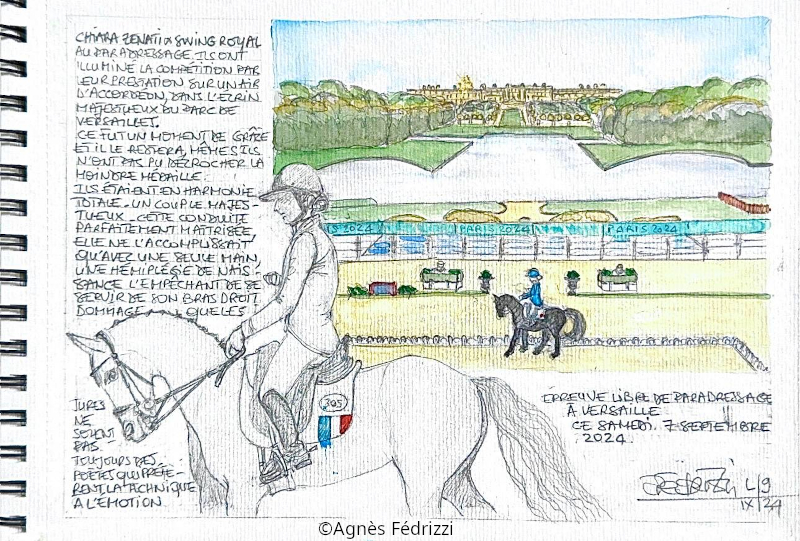 CHIARA ZENATI & SWING ROYAL
AU PARADRESSAGE. ILS ONT
ILLUMINÉ LA COMPÉTITION PAR
LEUR PRESTATION SUR UN AIR
D'ACCORDÉON, DANS L'ÉCRIN
MAJESTUEUX DU PARC DE
VERSAILLES.
CE FUT UN MOMENT DE GRÂCE
ET IL LE RESTERA, MÊME S'ILS
N'ONT PAS PU DÉCROCHER LA
MOINDRE MÉDAILLE.
ILS ÉTAIENT EN HARMONIE
TOTALE. UN COUPLE MAJES-
TUEUX. CETTE CONDUITE
PARFAITEMENT MAÎTRISÉE
ELLE NE L'ACCOMPLISSAIT
QU'AVEC UNE SEULE MAIN,
UNE HÉMIPLÉGIE DE NAIS-
SANCE L'EMPÊCHANT DE SE
SERVIR DE SON BRAS DROIT.
DOMMAGE QUE LES
JURÉS
NE
SOIENT
PAS
TOUJOURS DES
POÈTES QUI PRÉFÈ-
RENT LA TECHNIQUE
A L'ÉMOTION
S 2024
PARIS 2024
PARIS 2024
305
ÉPREUVE LIBRE DE PARADRESSAGE
À VERSAILLE
CE SAMEDI. 7 SEPTEMBRE
2024.
L/9
IX/24
©Agnès Fédrizzi